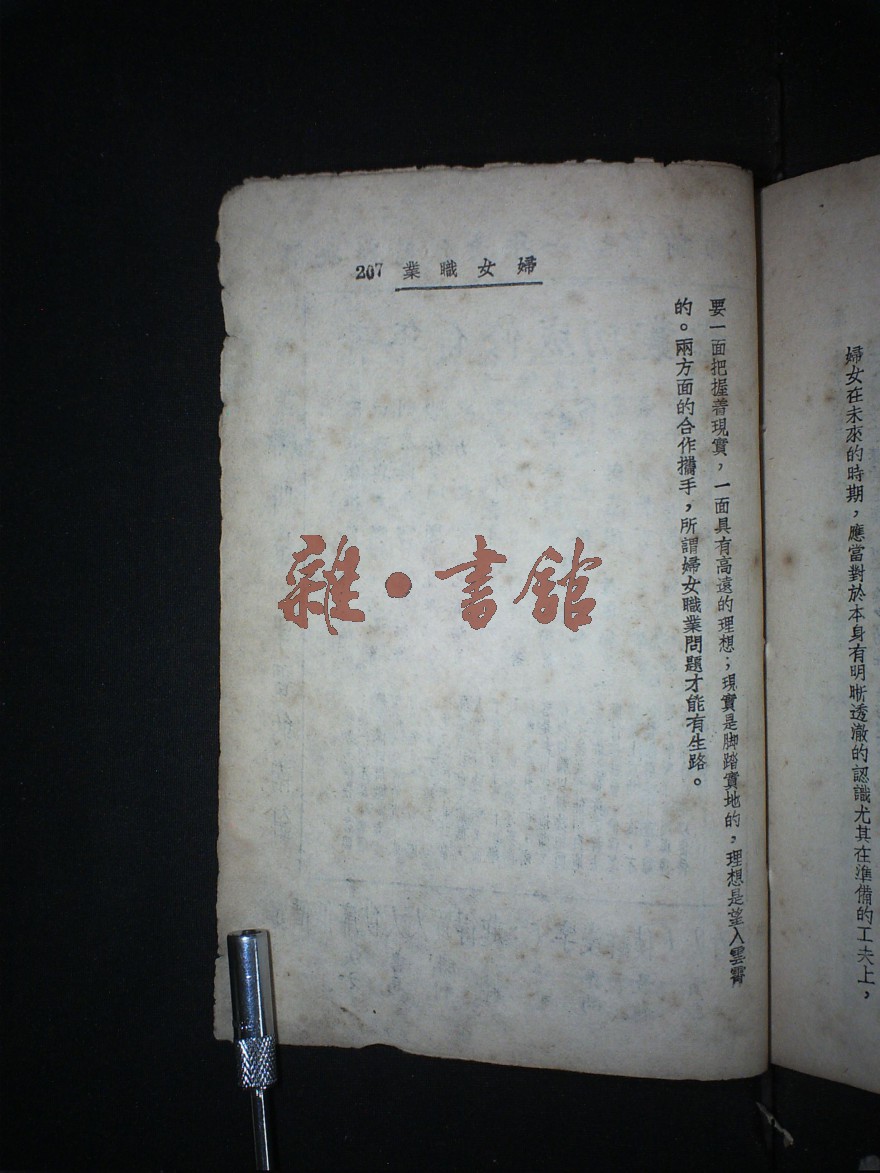 婦女在未來的時期，應當對於本身有明晰透澈的認識尤其在準備的工夫上，
婦女職業 207
要一面把握着現實，一面具有高遠的理想；現實是脚踏實地的，理想是望入雲霄
的。兩方面的合作攜手，所謂婦女職業問題才能有生路。
雜·書館